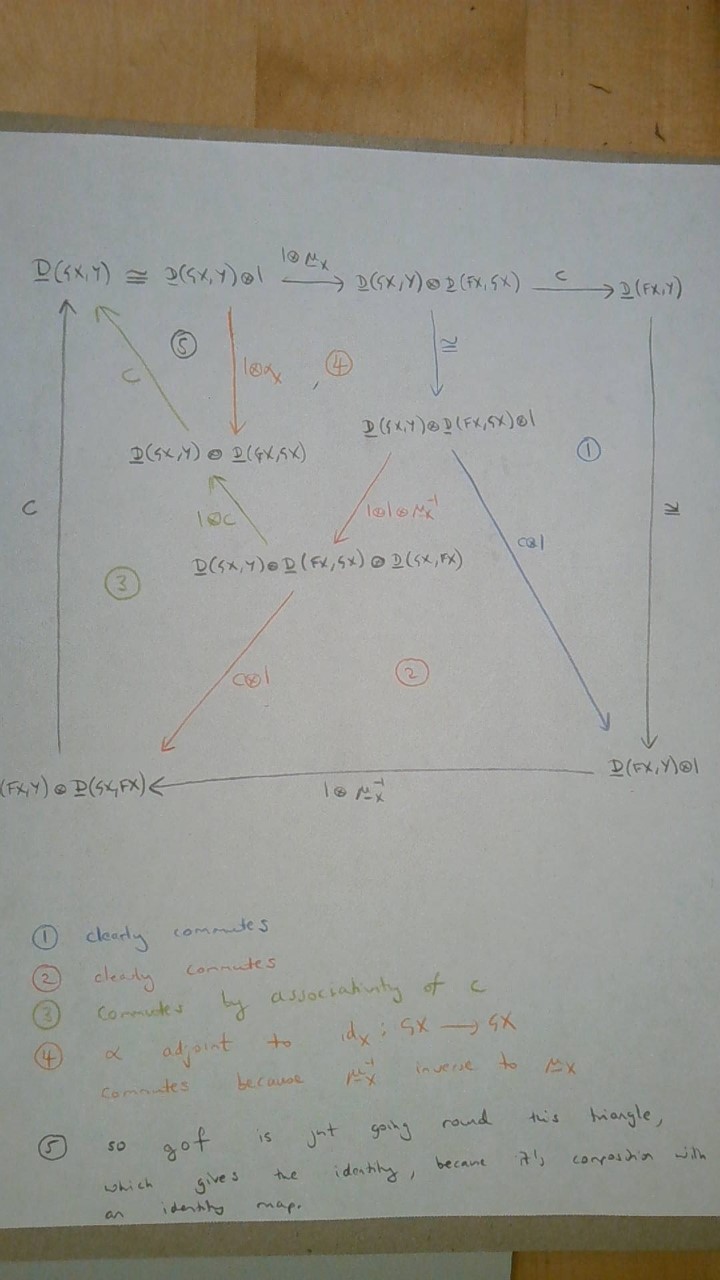 1⊗μ_X
D(GX,Y) ≅ D(GX,Y)⊗1 → D(GX,Y)⊗D(FX,GX) c → D(FX,Y)
⑤
c
1⊗α_X
④
≅
D(GX,Y)⊗D(FX,GX)⊗1
D(GX,Y)⊗D(GX,GX)
①
c
1⊗c
1⊗1⊗μ_X^{-1}
≅
c⊗1
D(GX,Y)⊗D(FX,GX)⊗D(GX,FX)
③
c⊗1
②
(FX,Y)⊗D(GX,FX) ← D(FX,Y)⊗1
1⊗μ_X^{-1}
① clearly commutes
② clearly commutes
③ commutes by associativity of c
④ α adjoint to id_X : GX → GX
commutes because μ_X^{-1} inverse to μ_X
⑤ so gof is just going round this triangle,
which gives the identity, because it's composition with
an identity map.